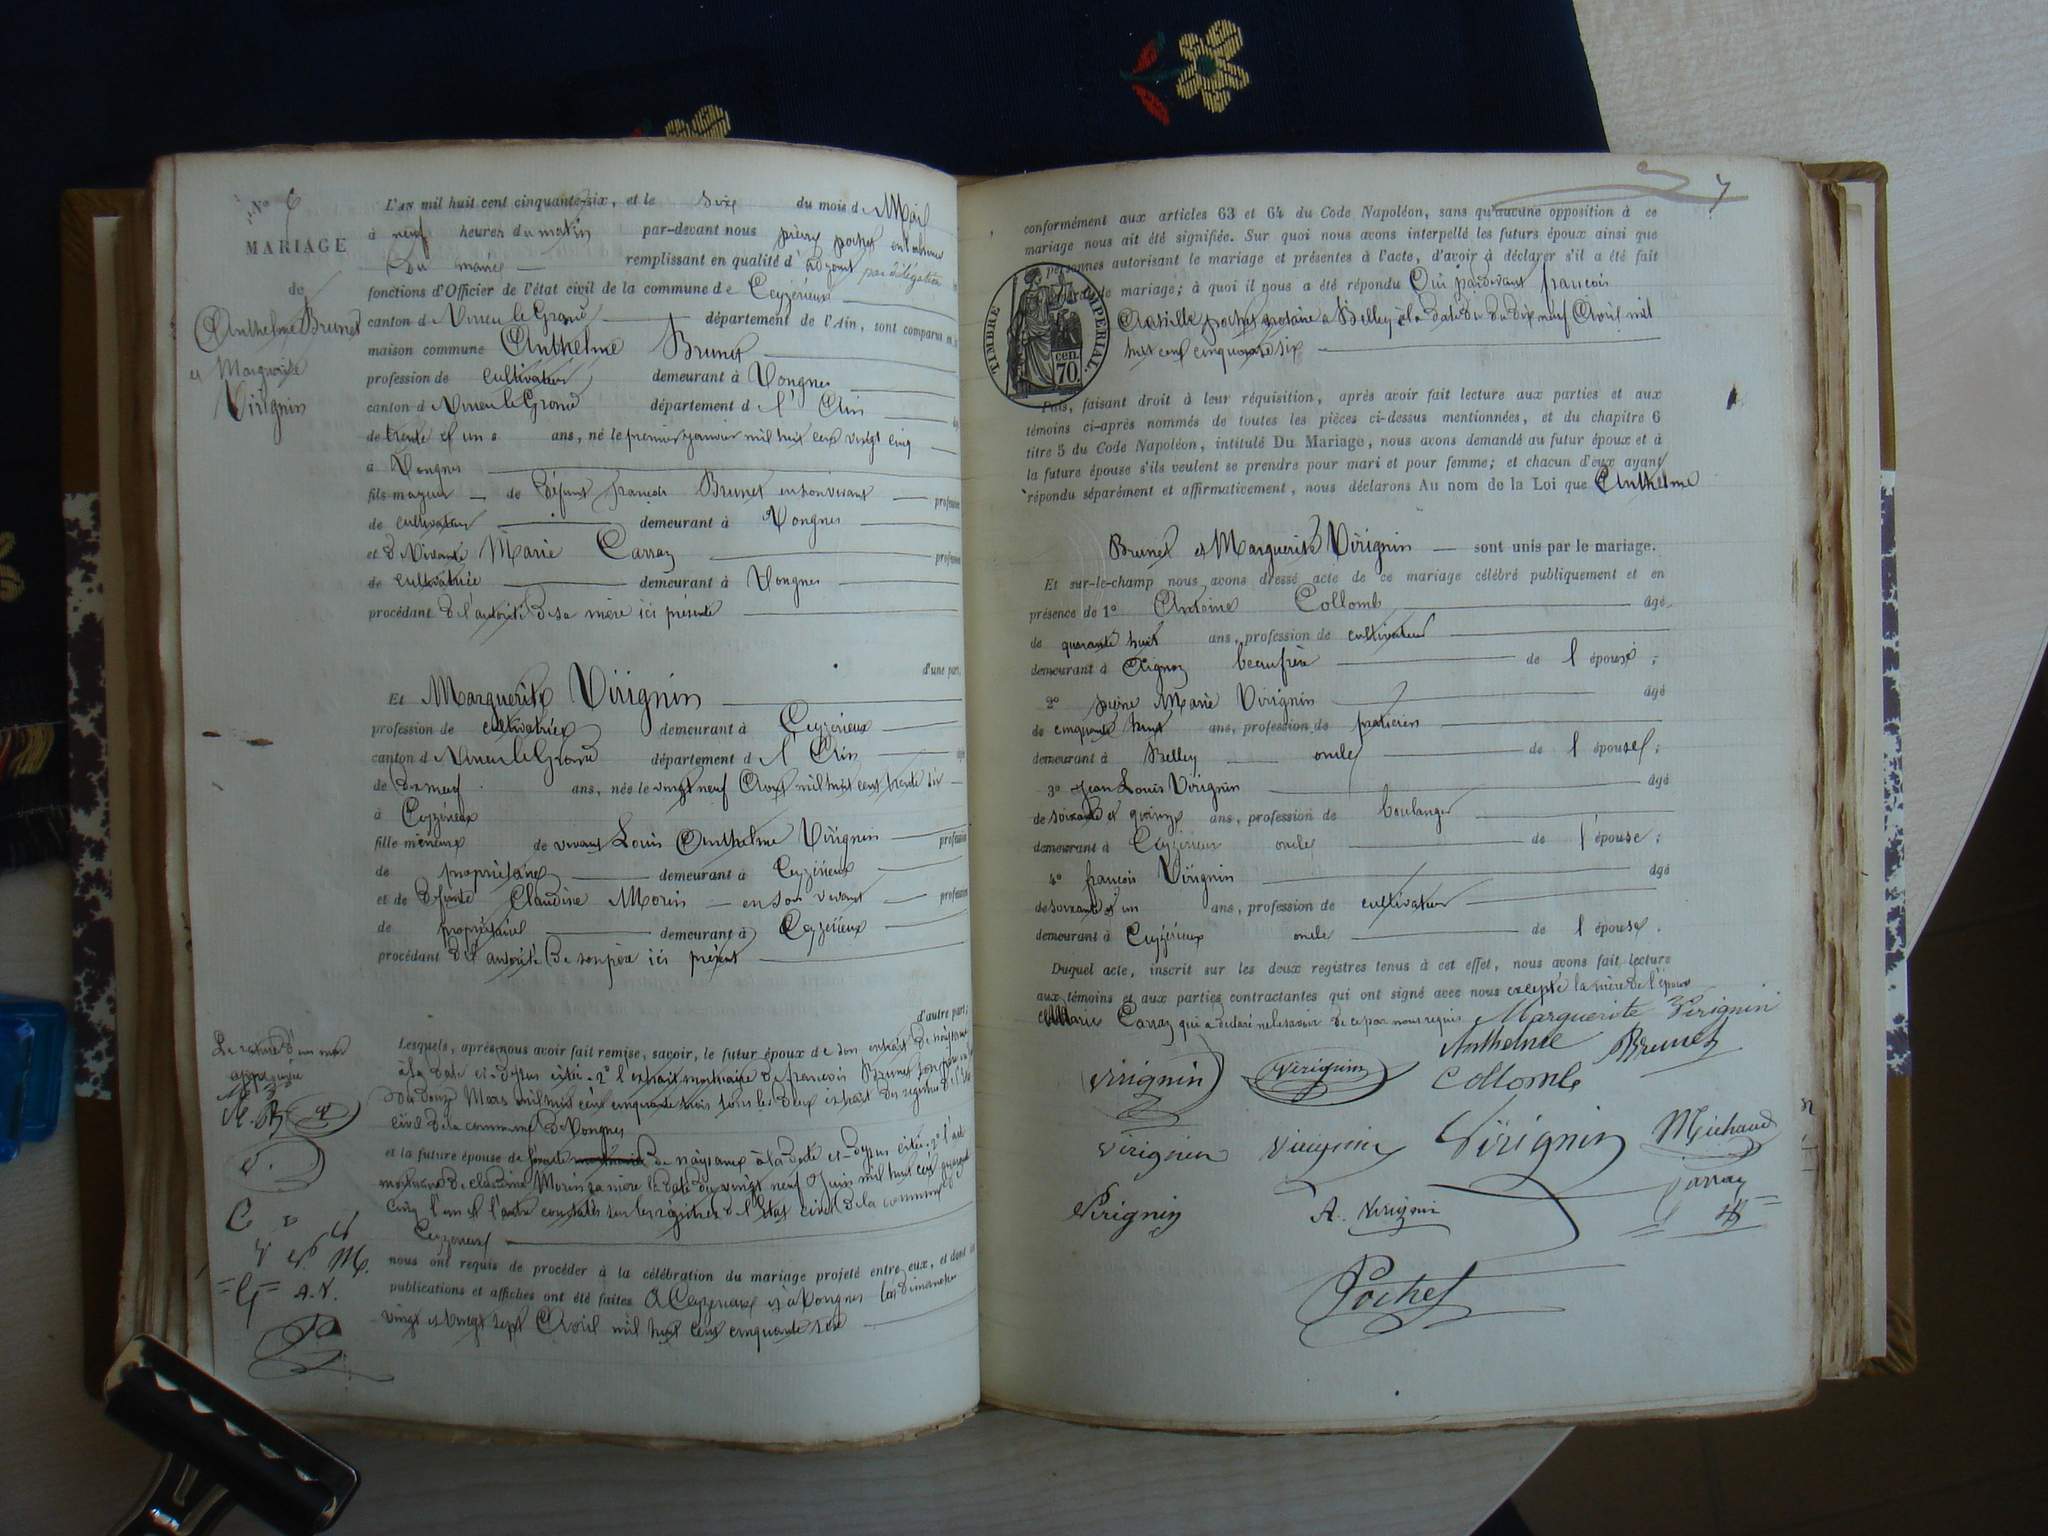 N° 6
MARIAGE
de
Anthelme Brunet
et Marguerite
Virignin
L'AN mil huit cent cinquante-six, et le six du mois de Mai
à neuf heures du matin par-devant nous pierre pochet en l'absence
du maire remplissant en qualité d'adjoint par délégation
fonctions d'Officier de l'état civil de la commune de Ceyzérieux
canton d Virieu le Grand département de l'Ain, sont comparus
maison commune Anthelme Brunet
profession de cultivateur demeurant à Vongnes
canton d Virieu le Grand département d l'Ain
de trente et un ans, né le premier janvier mil huit cent vingt cinq
à Vongnes
fils majeur de défunt françois Brunet en son vivant profession
de cultivateur demeurant à Vongnes
et d vivante Marie Carraz profession
de cultivatrice demeurant à Vongnes
procédant de l'autorité de sa mère ici présente
d'une part,
Et Marguerite Virignin
profession de cultivatrice demeurant à Ceyzérieux
canton d Virieu le Grand département d l'Ain âgé
de dix neuf ans, née le vingt neuf Août mil huit cent trente six
à Ceyzérieux
fille mineure de vivant Louis Anthelme Virignin profession
de propriétaire demeurant à Ceyzérieux
et de défunte Claudine Morin en son vivant profession
de propriétaire demeurant à Ceyzérieux
procédant de l'autorité de son père ici présent
d'autre part;
Lesquels, après nous avoir fait remise, savoir, le futur époux de son extrait de naissance
à la date ci-dessus citée. 2° l'extrait mortuaire de francois Brunet son père
du douze Mars mil huit cent cinquante trois tous les deux extrait des registres de l'état
civil de la commune de Vongnes
et la future épouse de de naissance à la date ci-dessus citée. 2° l'acte
mortuaire de claudine Morin sa mère la date du vingt neuf Juin mil huit cent quarante
cinq l'un et l'autre constatés sur les registres de l'état civil de la commune de
Ceyzérieux
nous ont requis de procéder à la célébration du mariage projeté entre eux, et dont les
publications et affiches ont été faites à Ceyzerieux et à Vongnes les dimanches
vingt et vingt sept Avril mil huit cent cinquante six
approuvée
A. B.
A. V.
7
conformément aux articles 63 et 64 du Code Napoléon, sans qu'aucune opposition à ce
mariage nous ait été signifiée. Sur quoi nous avons interpellé les futurs époux ainsi que
personnes autorisant le mariage et présentes à l'acte, d'avoir à déclarer s'il a été fait
de mariage; à quoi il nous a été répondu Oui pardevant francois
Achille pochet notaire à Belley à la date du dix neuf Avril mil
huit cent cinquante six
TIMBRE IMPERIAL.
70 cen.
Puis, faisant droit à leur réquisition, après avoir fait lecture aux parties et aux
témoins ci-après nommés de toutes les pièces ci-dessus mentionnées, et du chapitre 6
titre 5 du Code Napoléon, intitulé Du Mariage, nous avons demandé au futur époux et à
la future épouse s'ils veulent se prendre pour mari et pour femme; et chacun d'eux ayant
répondu séparément et affirmativement, nous déclarons Au nom de la Loi que Anthelme
Brunet et Marguerite Virignin sont unis par le mariage.
Et sur-le-champ nous avons dressé acte de ce mariage célébré publiquement et en
présence de 1° Antoine Collomb âgé
de quarante huit ans, profession de cultivateur
demeurant à beaufrère de l'époux;
2° pierre Marie Virignin âgé
de cinquante huit ans, profession de praticien
demeurant à Belley oncle de l'épouse;
3° Jean Louis Virignin âgé
de soixante et quinze ans, profession de boulanger
demeurant à Ceyzérieux oncle de l'épouse;
4° francois Virignin âgé
de soixante et un ans, profession de cultivateur
demeurant à Ceyzérieux oncle de l'épouse.
Duquel acte, inscrit sur les deux registres tenus à cet effet, nous avons fait lecture
aux témoins et aux parties contractantes qui ont signé avec nous excepté la mère de l'époux
Marie Carraz qui a déclaré ne le savoir de ce par nous requis Marguerite Virignin
Anthelme Brunet
Virignin Virignin Collomb
Virignin Virignin Virignin Michaud
Virignin A. Virignin Carraz
Pochet